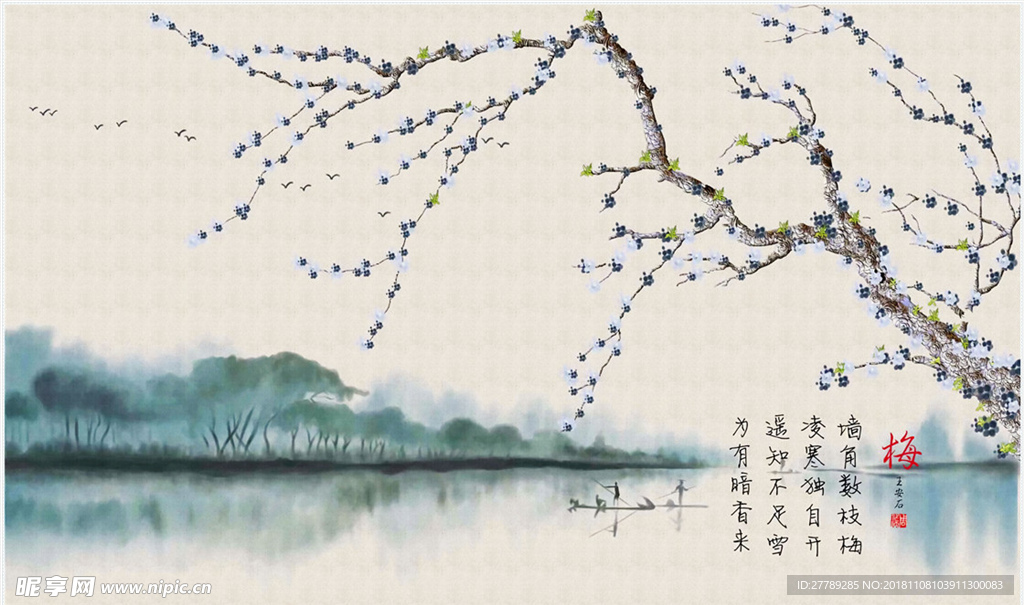 梅
王安石
墙角数枝梅
凌寒独自开
遥知不是雪
为有暗香来
昵享网 www.nipic.cn
ID:27789285 NO:20181108103911300083